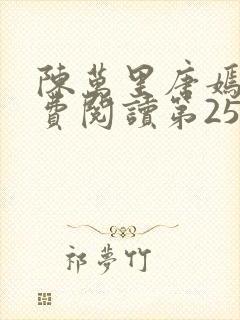 陳萬里唐嫣
費閱讀第25
祁夢竹